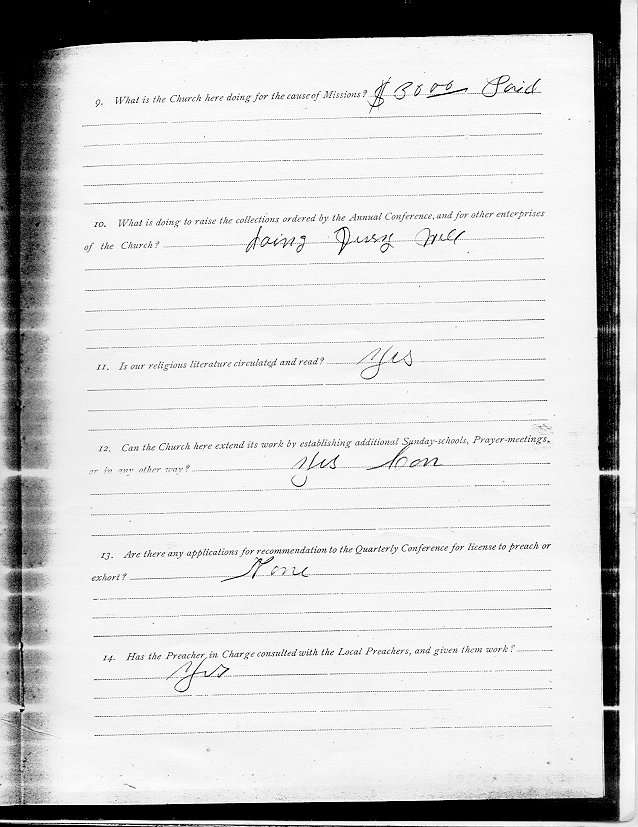 9. What is the Church here doing for the cause of Missions? $ 30 00 Paid
10. What is doing to raise the collections ordered by the Annual Conference, and for other enterprises
of the Church? doing
11. Is our religious literature circulated and read? Yes
12. Can the Church here extend its work by establishing additional Sunday-schools, Prayer-meetings,
or in any other way? Yes
13. Are there any applications for recommendation to the Quarterly Conference for license to preach or
exhort? None
14. Has the Preacher in Charge consulted with the Local Preachers, and given them work?
Yes